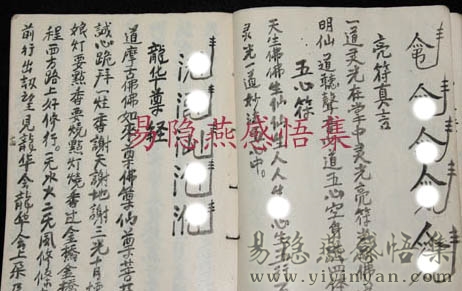 亮符真言
一道灵光在掌中灵光亮符
明仙一道聽聲 道五心空身
五心符
天生佛佛生仙仙生人人生
灵光一道妙法 心中。
龍华尊经
道摩古佛佛如來尊佛 仙尊菩
誠心跪拜一炷香謝天謝地謝三光
娘灯要點香要燒點灯燒香过金橋金橋
程西方路上好修行。元水火二 風修
前行出劫望見龍华会龍华会上朵
易隐燕感悟集
易隐燕感悟集
www.yiyinyan.com